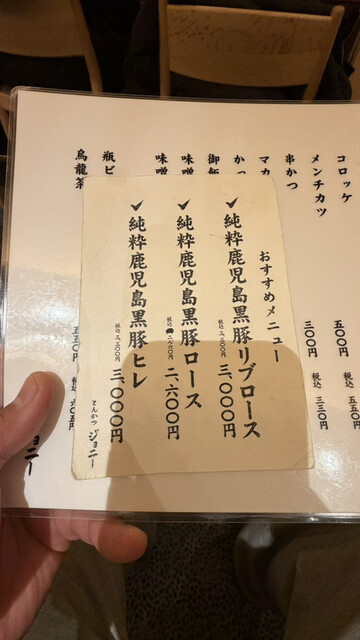 コロッケ 五〇〇円 税込 五五〇円
メンチカツ 三〇〇円 税込 三三〇円
串かつ
マカ
御飯
味噌
味噌
瓶ビ
烏龍茶 五五〇円 税込 六〇五円
ョニー
おすすめメニュー
✓純粋鹿児島黒豚リブロース
税込 三、三〇〇円 三、〇〇〇円
✓純粋鹿児島黒豚ロース
税込 二、八六〇円 二、六〇〇円
✓純粋鹿児島黒豚ヒレ
税込 三、三〇〇円 三、〇〇〇円
とんかつ ジョニー